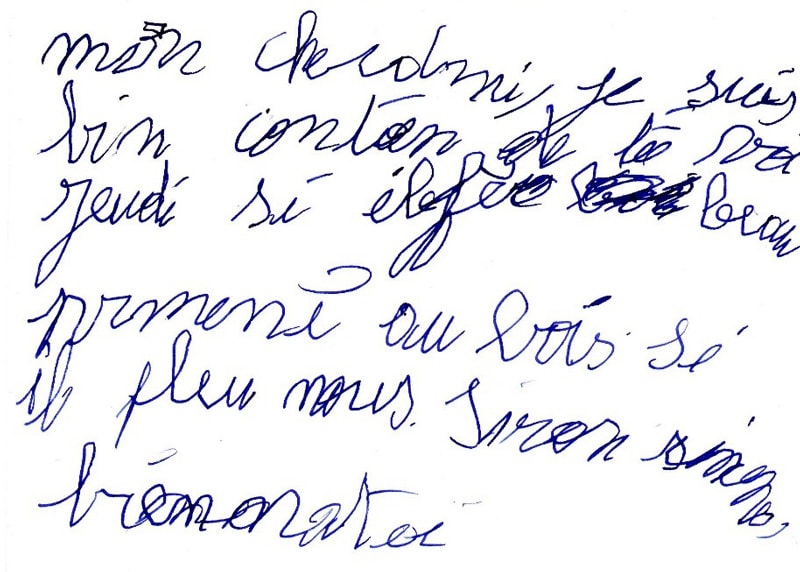 mon cherami, je suis
bin contan de te voi
jeudi si il fé beau
prmené au bois si
il pleu nous siron
biémonatoi